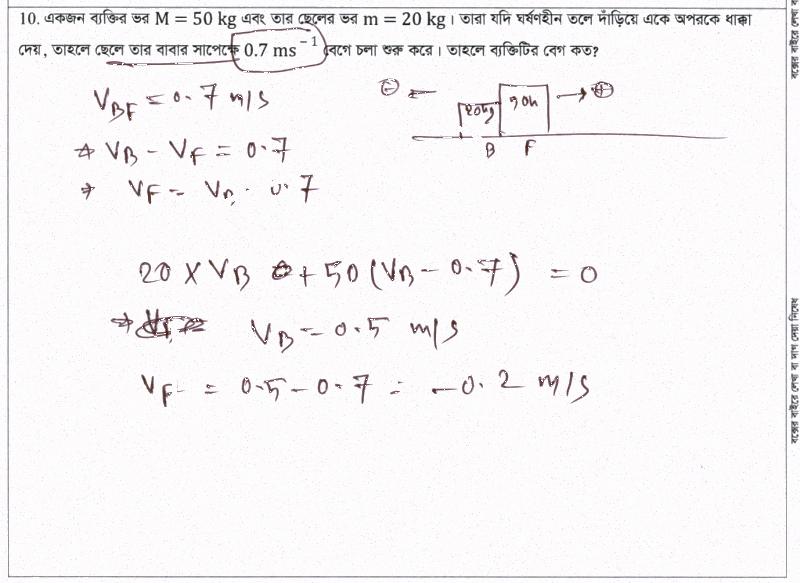 10. একজন ব্যক্তির ভর M = 50 kg এবং তার ছেলের ভর m = 20 kg। তারা যদি ঘর্ষণহীন তলে দাঁড়িয়ে একে অপরকে ধাক্কা
দেয়, তাহলে ছেলে তার বাবার সাপেক্ষে 0.7 ms⁻¹ বেগে চলা শুরু করে। তাহলে ব্যক্তিটির বেগ কত?
V_BF = 0.7 m/s
⊖ ← 20kg → ⊕
B F
⇒ V_B - V_F = 0.7
⇒ V_F = V_B - 0.7
20 × V_B + 50 (V_B - 0.7) = 0
⇒ V_B = 0.5 m/s
V_F = 0.5 - 0.7 = -0.2 m/s
বক্সের বাইরে লেখা বা দাগ দেয়া নিষেধ